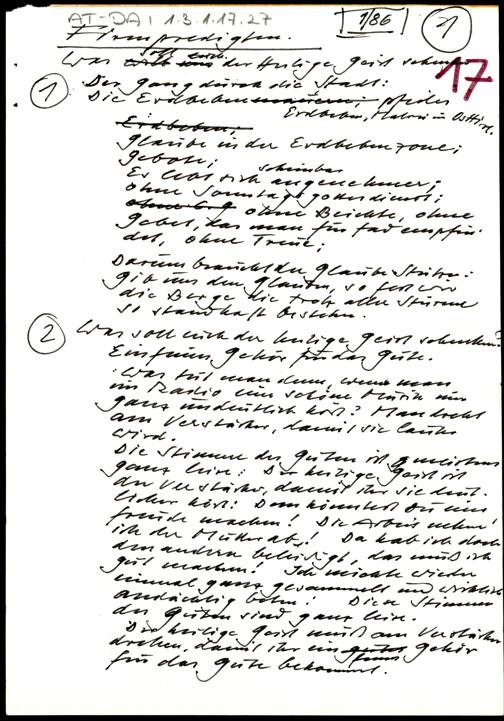 AT-DA 1.3.1.17.27
1/86
1
17
Firmpredigten.
soll euch
Was der Heilige Geist schenken
1 Der Gang durch die Stadt:
Die Erdbebenmauern, pfeiler
Erdbeben, in Osttirol.
Erdbeben,
Glaube in der Erdbebenzone;
Gebote;
scheinbar
Es lebt sich angenehmer;
ohne Sonntagsgottesdienst;
ohne Beichte, ohne
Gebet, das man für fad empfin-
det, ohne Treue;
Darum braucht der Glaube Stütze:
Gib uns den Glauben, so fest wie
die Berge die trotz aller Stürme
so standhaft bestehen.
2 Was soll euch der heilige Geist schenken?
Ein feines Gehör für das Gute.
Was tut man denn, wenn man
im Radio eine schöne Musik nur
ganz undeutlich hört? Man dreht
am Verstärker, damit sie lauter
wird.
Die Stimme des Guten ist meistens
ganz leise: Der heilige Geist ist
der Verstärker, damit ihr sie deut-
licher hört: Dem könntest Du eine
Freude machen! Die Arbeit nehme
ich der Mutter ab! Da hab ich doch
den andern beleidigt, das muß ich
gut machen! Ich möchte wieder
einmal ganz gesammelt und wirklich
andächtig beten! Diese Stimmen
des Guten sind ganz leise.
Der heilige Geist muß am Verstärker
drehen, damit ihr ein gutes Gehör
feines
für das Gute bekommt.